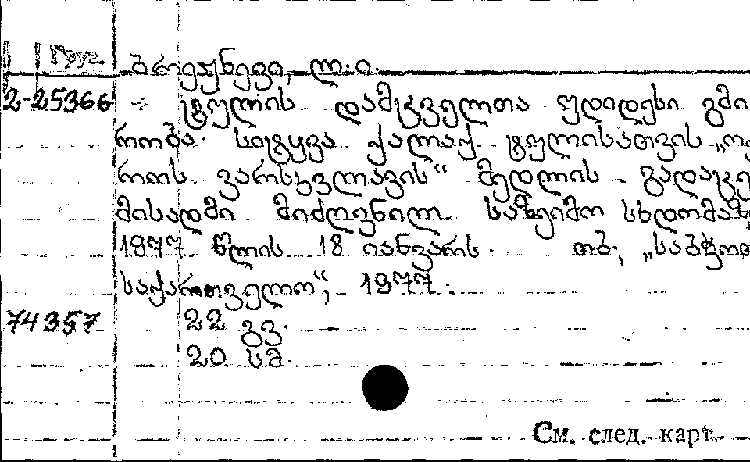 Груз.
ბრეჟნევი, ლ. ი.
2-25366 ტულის დამცველთა უდიდესი გმი
რობა. სიტყვა ქალაქ ტულისათვის „ოქ
როს ვარსკვლავის“ მედლის გადაცე
მისადმი მიძღვნილ საზეიმო სხდომაზე
1977 წლის 18 იანვარს. თბ., „საბჭოთ
საქართველო“, 1977.
74357 22 გვ.
20 სმ.
См. след. карт.